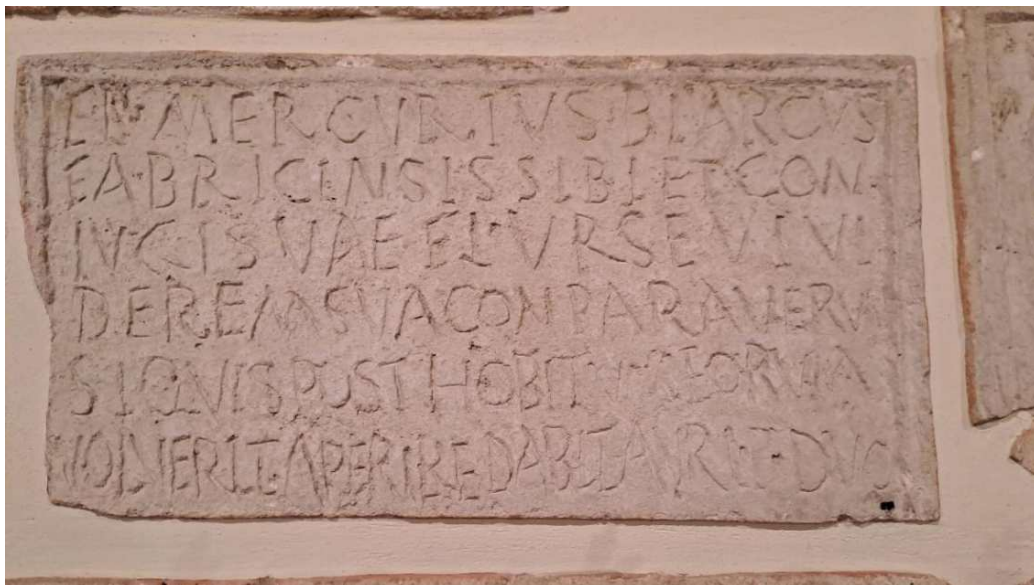 FL·MERCVRIVS·BIARCVS
FABRICINSIS SIBI ET CON
IVGI SVAE FL·VRSE VIVI
DE REM SVA CONPARAVERV
SI QVIS POST HOBITVM EORVM A
VOLVERIT APERIRE DABIT AVRI T·DVO